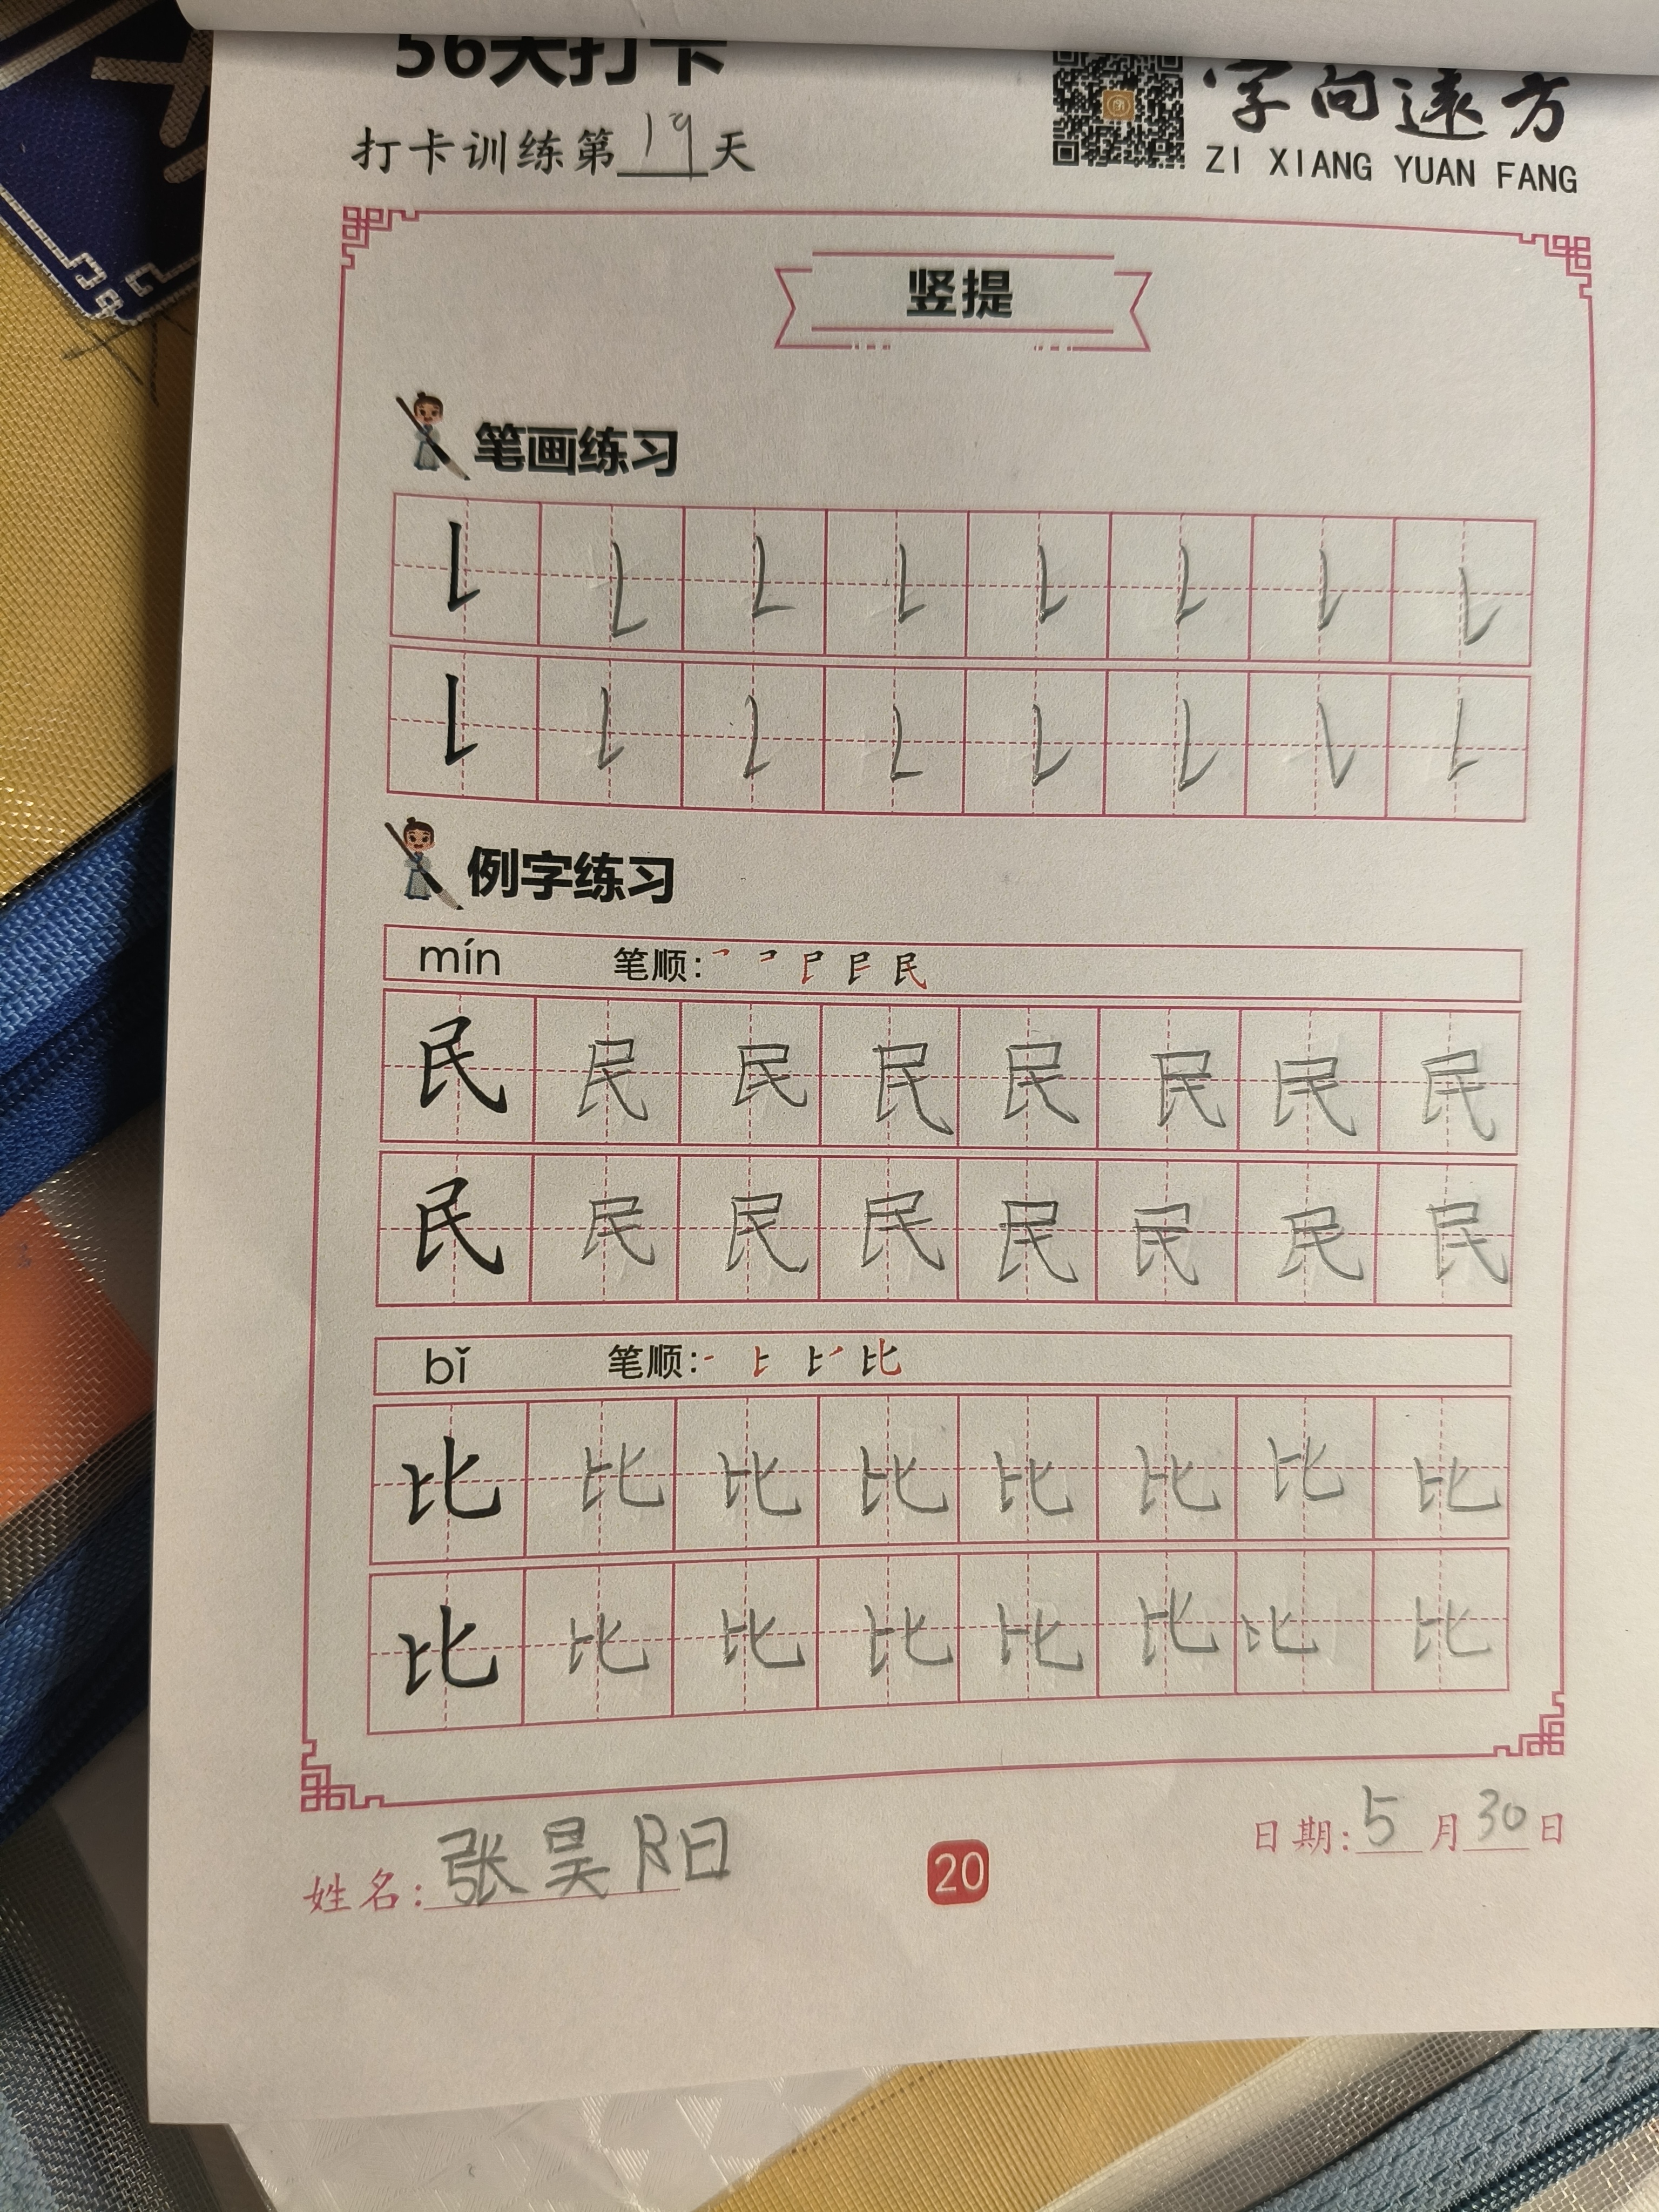 56天打卡
字向远方
打卡训练第19天
ZI XIANG YUAN FANG
竖提
笔画练习
例字练习
mín 笔顺:
民 民 民 民 民 民 民 民
民 民 民 民 民 民 民 民
bǐ 笔顺:
比 比 比 比 比 比 比 比
比 比 比 比 比 比 比 比
姓名:张昊阳
20
日期:5月30日